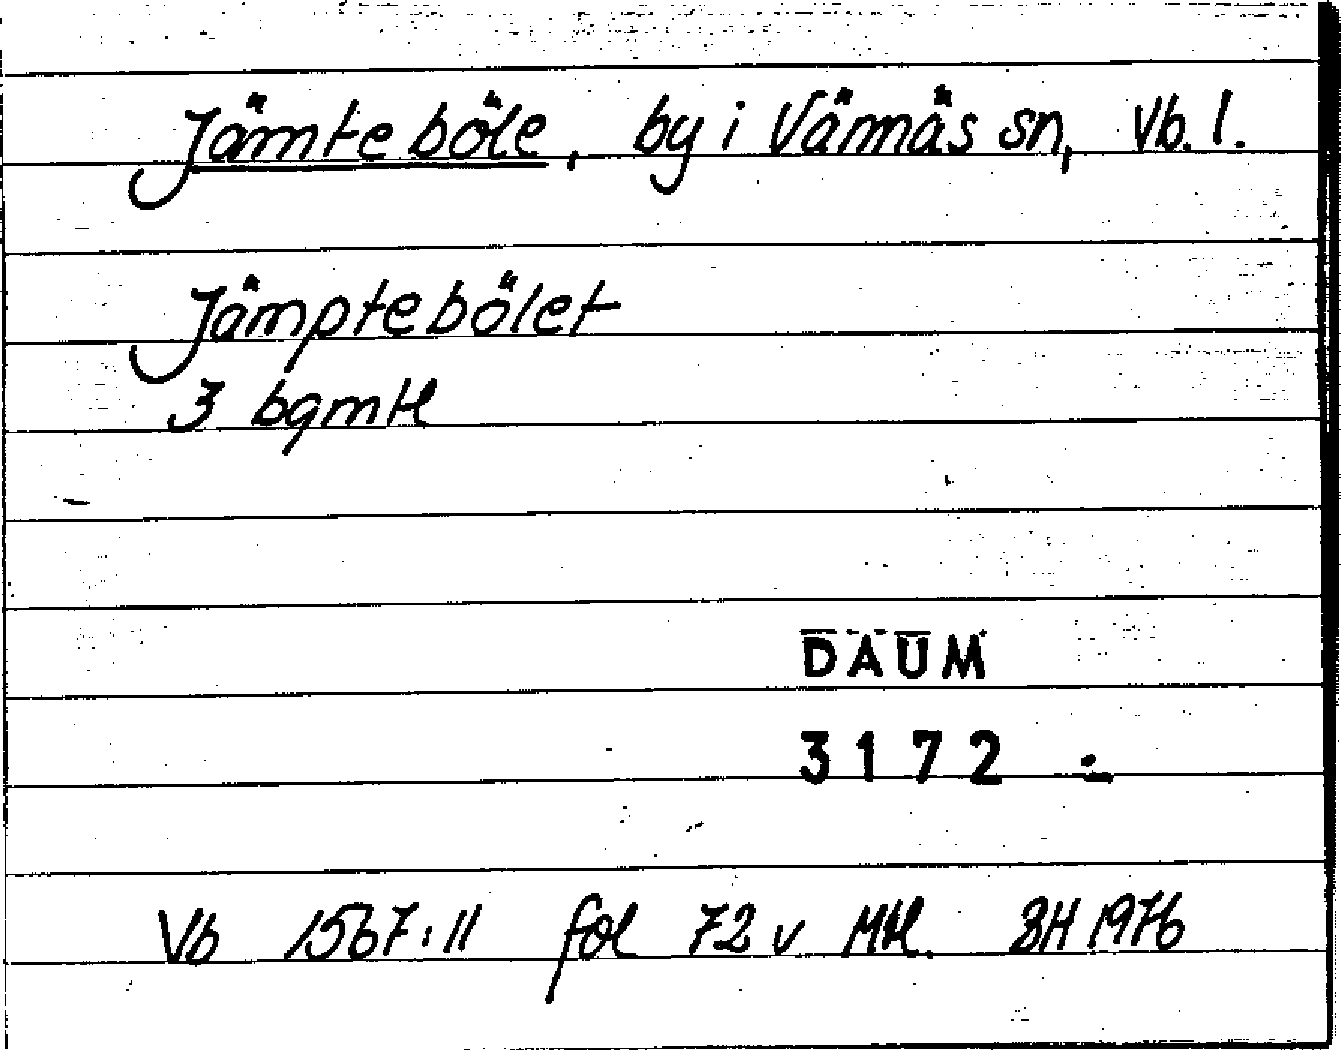 Jämteböle, by i Vännäs sn, Vb. l.
Jämptebölet
3 bgmtl
DAUM
3172 :
Vb 1567:11 fol 72 v Mtl. BH 1976